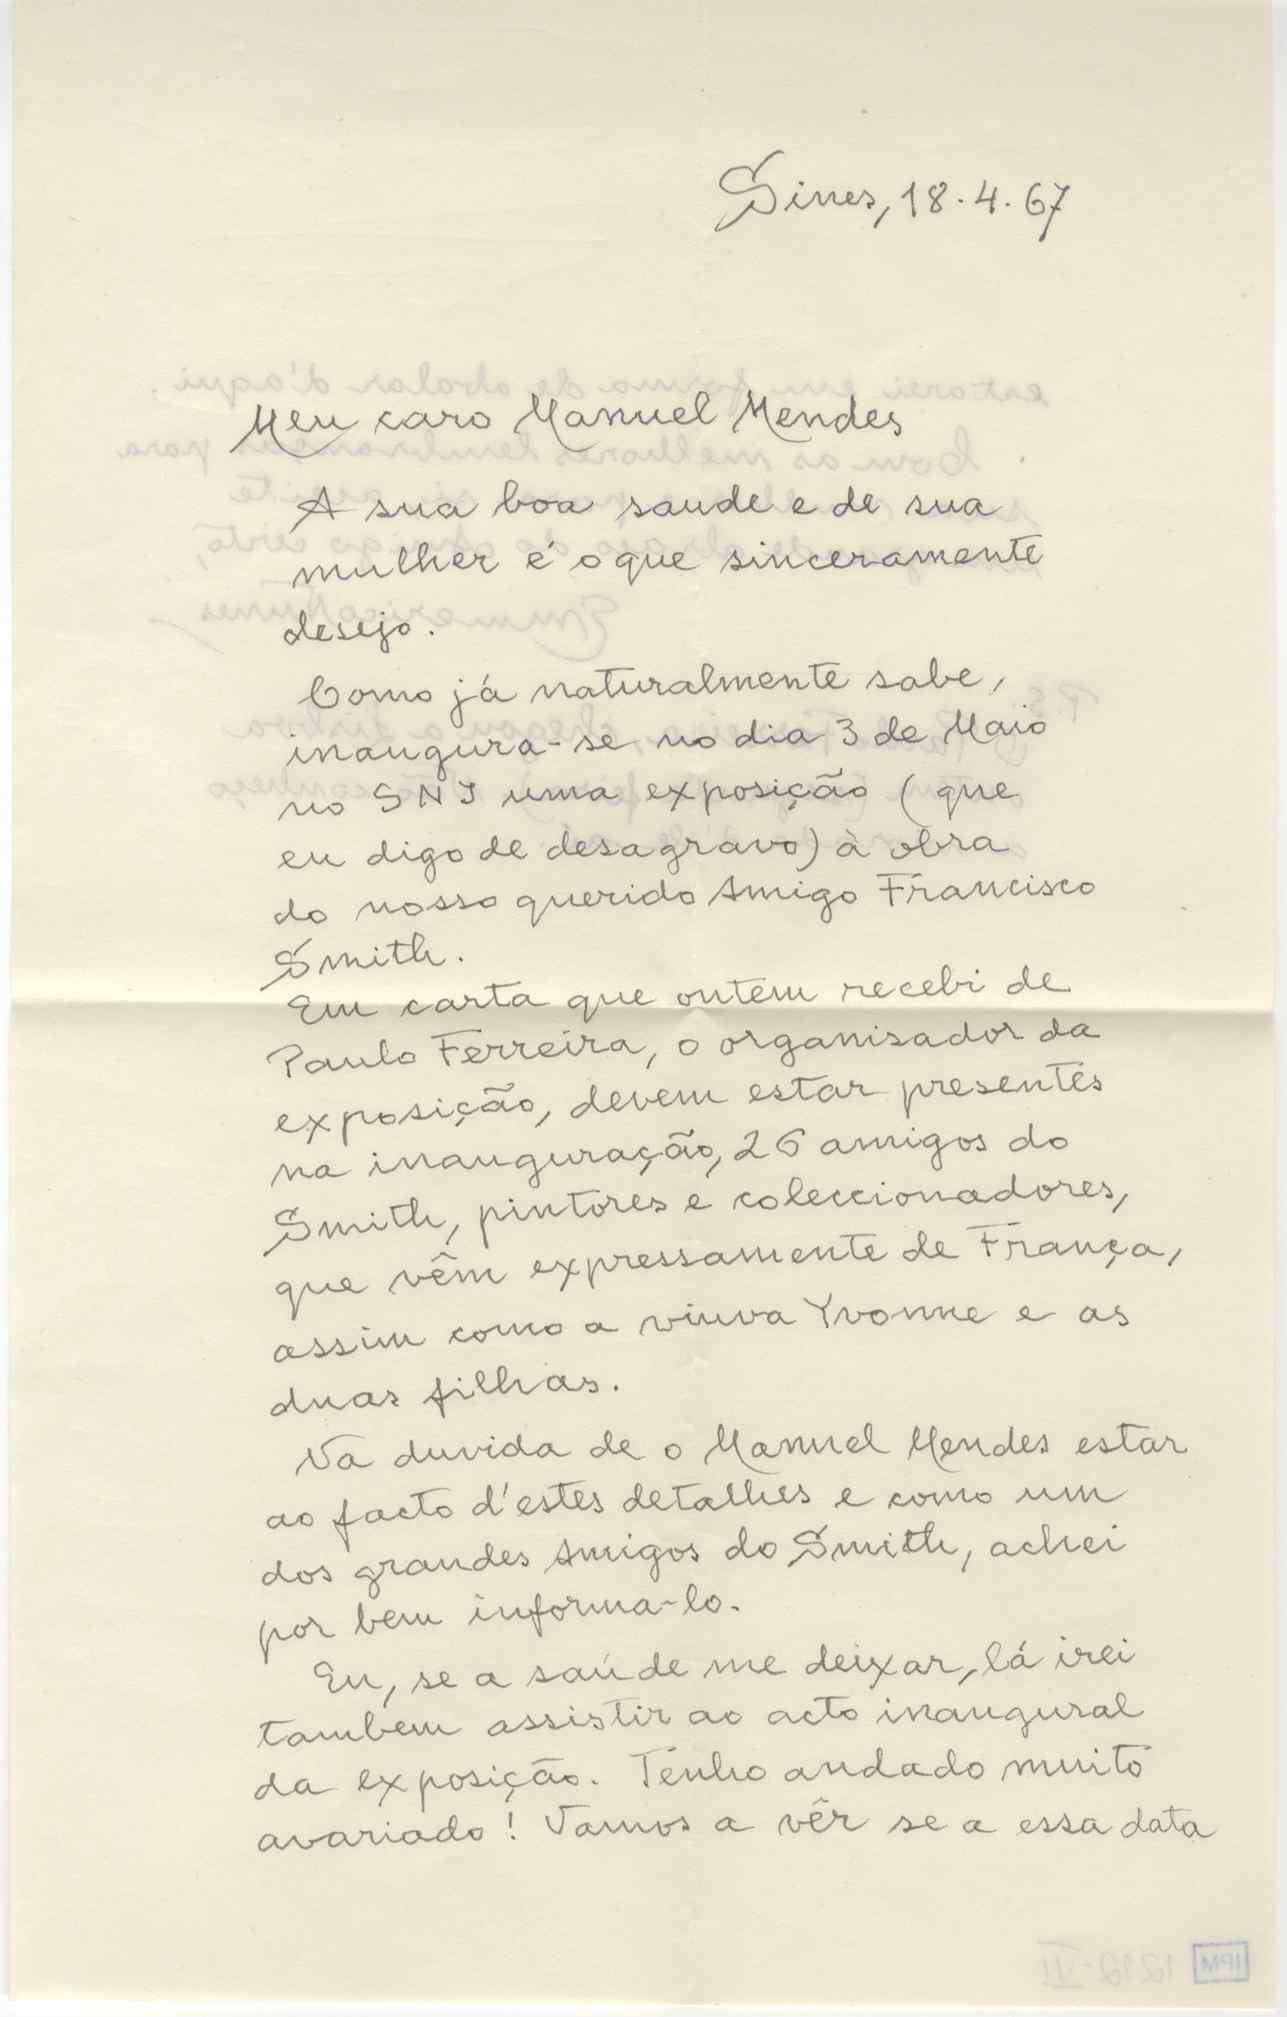 Sines, 18.4.67
Meu caro Manuel Mendes
A sua boa saude e de sua
mulher é o que sinceramente
desejo.
Como já naturalmente sabe,
inaugura-se no dia 3 de Maio
no SNI uma exposição (que
eu digo de desagravo) à obra
do nosso querido Amigo Francisco
Smith.
Em carta que ontem recebi de
Paulo Ferreira, o organisador da
exposição, devem estar presentes
na inauguração, 26 amigos do
Smith, pintores e coleccionadores,
que vêm expressamente de França,
assim como a viuva Yvonne e as
duas filhas.
Na duvida de o Manuel Mendes estar
ao facto d'estes detalhes e como um
dos grandes Amigos do Smith, achei
por bem informa-lo.
Eu, se a saúde me deixar, lá irei
tambem assistir ao acto inaugural
da exposição. Tenho andado muito
avariado! Vamos a vêr se a essa data